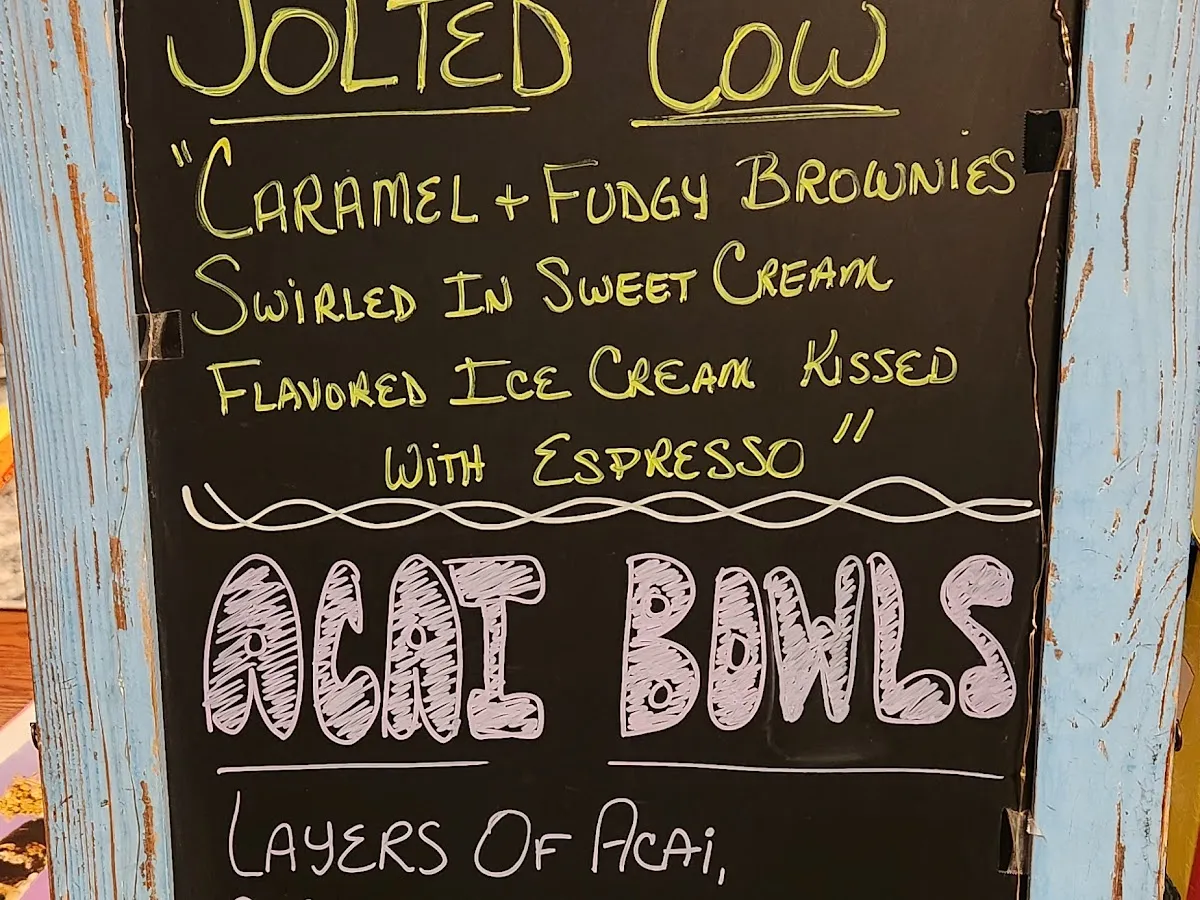 JOLTED COW
"CARAMEL + FUDGY BROWNIES
SWIRLED IN SWEET CREAM
FLAVORED ICE CREAM KISSED
WITH ESPRESSO"
ACAI BOWLS
LAYERS OF ACAI,